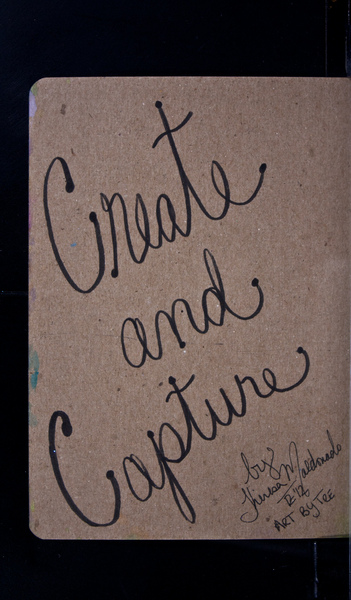 Create
and
Capture
by:
Theresa Maldonado
ART By TEE